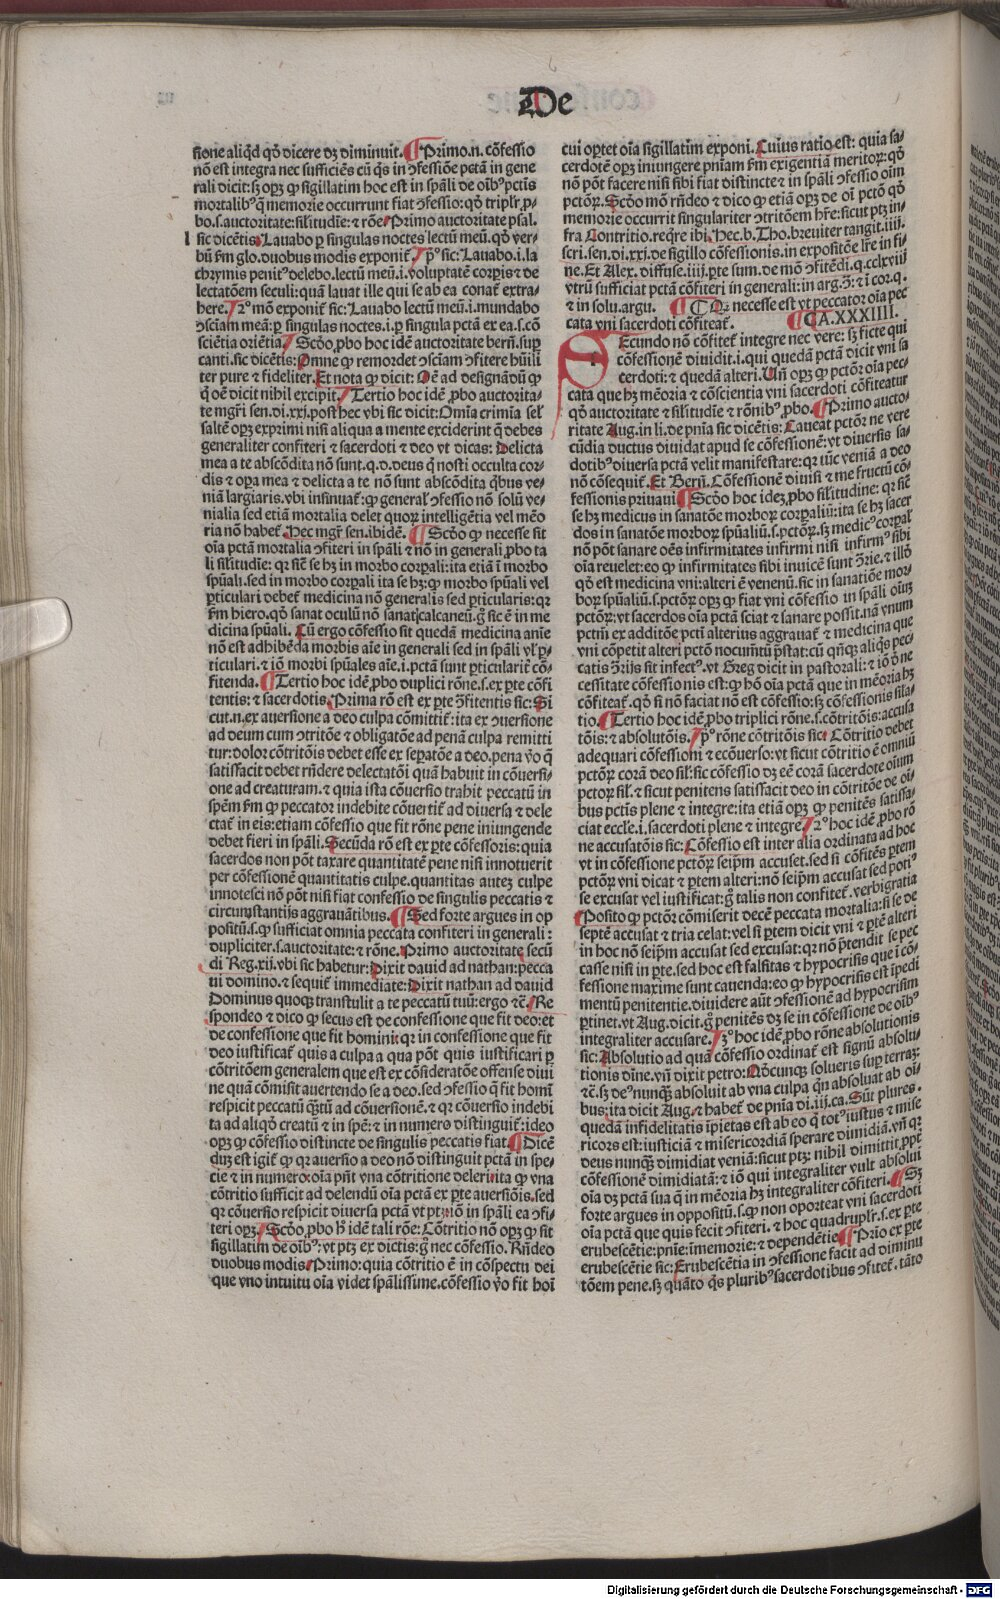 De
sione aliqd qd dicere dz diminuit. ¶ Primo.n. cōfessio
nō est integra nec sufficiēs cū qs in ꝯfessiōe pctā in gene
rali dicit: sꝫ opꝫ ꝙ sigillatim hoc est in spāli de oībꝰ pctis
mortalibꝰ q̄ memorie occurrunt fiat ꝯfessio: qd̄ triplr ꝓ-
bo.s. auctoritate: silitudīe: ⁊ rōne Primo auctoritate psal.
l sic dicētis. Lauabo ꝑ singulas noctes lectū meū. qd̄ ver-
bū fm glo. duobus modis exponit̄ pº sic: Lauabo.i. la
chrymis penitꝰ delebo. lectū meū.i. voluptatē corpis ⁊ de
lectatōem seculi: quā lauat ille qui se ab ea conat̄ extra-
here. 2º mō exponit̄ sic: Lauabo lectū meū.i. mundabo
ꝯsciam meā: ꝑ singulas noctes.i. ꝑ singula pctā ex ea.s. cō
sciētia oriētia Scdo ꝓbo hoc idē auctoritate bern̄. sup
canti. sic dicētis: Omne ꝙ remordet ꝯsciam ꝯfitere hūili
ter pure ⁊ fideliter. Et nota ꝙ dicit: Oē ad designādū ꝙ
q̄ oē dicit nihil excipit. Tertio hoc idē ꝓbo auctorita-
te mgri sen. di. xxi. post hec vbi sic dicit: Omia crimia sel
saltē opꝫ exprimi nisi aliqua a mente exciderint q̄ debes
generaliter confiteri ⁊ sacerdoti ⁊ deo vt dicas: Delicta
mea a te abscōdita nō sunt. q.d. deus q̄ nosti occulta cor-
dis ⁊ opa mea ⁊ delicta a te nō sunt abscōdita qbus ve-
niā largiaris. vbi insinuat̄: ꝙ general' ꝯfessio nō solū ve-
nialia sed etiā mortalia delet quoꝝ intelligētia vel mēo
ria nō habet̄. Hec mgr̄ sen. ibidē. ¶ Scdo ꝙ necesse sit
oīa pctā mortalia ꝯfiteri in spāli ⁊ nō in generali ꝓbo ta
li silitudīe: qr sic̄ se hꝫ in morbo corpali: ita etiā ī morbo
spūali. sed in morbo corpali ita se hꝫ: ꝙ morbo spūali vel
ꝑticulari debet̄ medicina nō generalis sed ꝑticularis: qr
fm hiero. qd̄ sanat oculū nō sanat calcaneū. g̊ sic ē in me
dicina spūali. Cū ergo cōfessio sit quedā medicina anīe
nō est adhibēda morbis aīe in generali sed in spāli vl' ꝑ-
ticulari. ⁊ iō morbi spūales aīe.i. pctā sunt ꝑticularit̄ cō-
fitenda. ¶ Tertio hoc idē ꝓbo duplici rōne.s. ex ꝑte cōfi
tentis: ⁊ sacerdotis. Prima rō est ex ꝑte ꝯfitentis sic: Si
cut.n. ex auersione a deo culpa cōmittit̄: ita ex ꝯuersione
ad deum cum ꝯtritōe ⁊ obligatōe ad penā culpa remitti
tur: dolor cōtritōis debet esse ex sepatōe a deo. pena v̊o q̄
satisfacit debet rn̄dere delectatōi quā habuit in cōuersi-
one ad creaturam. ⁊ quia ista cōuersio trahit peccatū in
spēm fm ꝙ peccator indebite cōuertit̄ ad diuersa ⁊ dele
ctat̄ in eis: etiam cōfessio que fit rōne pene iniungende
debet fieri in spāli. Secūda rō est ex ꝑte cōfessoris: quia
sacerdos non pōt taxare quantitatē pene nisi innotuerit
per cōfessionē quantitatis culpe. quantitas auteꝫ culpe
innotesci nō pōt nisi fiat confessio de singulis peccatis ⁊
circunstantijs aggrauātibus. ¶ Sed forte argues in op
positū.s. ꝙ sufficiat omnia peccata confiteri in generali:
dupliciter.s. auctoritate: ⁊ rōne. Primo auctoritate secū
di Reg. xij. vbi sic habetur: Dixit dauid ad nathan: pecca
ui domino. ⁊ sequit̄ immediate: Dixit nathan ad dauid
Dominus quoqꝫ transtulit a te peccatū tuū: ergo ⁊c̄. Re
spondeo ⁊ dico ꝙ secus est de confessione que fit deo: et
de confessione que fit homini: qr in confessione que fit
deo iustificat̄ quis a culpa a qua pōt quis iustificari ꝑ
cōtritōem generalem que est ex cōsideratōe offense diui
ne quā cōmisit auertendo se a deo. sed ꝯfessio q̄ fit homī
respicit peccatū q̄ꝫtū ad cōuersionē. ⁊ qr cōuersio indebi
ta ad aliqd̄ creatū ⁊ in spē: ⁊ in numero distinguit̄: ideo
opꝫ ꝙ cōfessio distincte de singulis peccatis fiat. ¶ Dicē
dūꝫ est igit̄ ꝙ qr auersio a deo nō distinguit pctā in spe-
cie ⁊ in numero: oīa pn̄t vna cōtritione deleri: ita ꝙ vna
cōtritio sufficit ad delendū oīa pctā ex ꝑte auersiōis. sed
qr cōuersio respicit diuersa pctā vt ptꝫ: iō in spāli ea ꝯfi-
teri opꝫ. Scdo ꝓbo h̄ idē tali rōe: Cōtritio nō opꝫ ꝙ sit
sigillatim de oībꝰ: vt ptꝫ ex dictis: g̊ nec cōfessio. Rn̄deo
duobus modis Primo: quia cōtritio ē in cōspectu dei
que vno intuitu oīa videt spālissime. cōfessio v̊o fit hoī
cui optet oīa sigillatim exponi. Cuius ratio est: quia sa-
cerdotē opꝫ iniungere pn̄iam fm exigentiā meritoꝝ: qd̄
nō pōt facere nisi sibi fiat distincte ⁊ in spāli ꝯfessio oīm
pctōꝝ. Scdo mō rn̄deo ⁊ dico ꝙ etiā opꝫ de oī pctō qd̄
memorie occurrit singulariter ꝯtritōem hr̄e: sicut ptꝫ in-
fra Contritio. reqre ibi. Hec. b. Tho. breuiter tangit. iiij.
scri. sen. di. xxj. de sigillo cōfessionis. in expositōe lr̄e in fi-
ne. Et Alex. diffuse. iiij. ꝑte sum. de mō ꝯfitēdi. q. cclxviij
vtrū sufficiat pctā cōfiteri in generali: in arg. ꝯ: ⁊ ī cor. q.
⁊ in solu. argu. ¶ ¶ Q necesse est vt peccator oīa pec
cata vni sacerdoti cōfiteat̄. ¶ CA. XXXIIII.
Secundo nō cōfitet̄ integre nec vere: sꝫ ficte qui
cōfessionē diuidit.i. qui quedā pctā dicit vni sa
cerdoti: ⁊ quedā alteri. Un̄ opꝫ ꝙ pctōr oīa pec-
cata que hꝫ mēoria ⁊ cōscientia vni sacerdoti cōfiteatur
qd̄ auctoritate ⁊ silitudīe ⁊ rōnibꝰ ꝓbo. ¶ Primo aucto-
ritate Aug. in li. de pn̄ia sic dicētis: Caueat pctōr ne vere
cūdia ductus diuidat apud se cōfessionē: vt diuersis sa-
dotibꝰ diuersa pctā velit manifestare: qr tūc veniā a deo
nō cōsequit̄. Et Bern̄. Cōfessionē diuisi ⁊ me fructū cō-
fessionis priuaui ¶ Scdo hoc ideꝫ ꝓbo silitudine: qr sic̄
se hꝫ medicus in sanatōe morboꝝ corpaliū: ita se hꝫ sacer
dos in sanatōe morboꝝ spūaliū.s. pctōꝝ. sꝫ medicꝰ corpal'
nō pōt sanare oēs infirmitates infirmi nisi infirmꝰ sibi
oīa reuelet: eo ꝙ infirmitates sibi inuicē sunt ꝯrie. ⁊ illd̄
qd̄ est medicina vni: alteri ē venenū. sic in sanatiōe mor-
boꝝ spūaliū.s. pctōꝝ opꝫ ꝙ fiat vni cōfessio in spāli oīuꝫ
pctōꝝ: vt sacerdos oīa pctā sciat ⁊ sanare possit. nā vnum
pctm̄ ex additōe pcti alterius aggrauat̄ ⁊ medicina que
vni cōpetit alteri pctō nocumētū p̄stat: cū qn̄qꝫ aliqs pec-
catis ꝯrijs sit infectꝰ. vt Greg dicit in pastorali: ⁊ iō ꝯ ne
cessitate cōfessionis est: ꝙ hō oīa pctā que in mēoria hꝫ
cōfiteat̄. qd̄ si nō faciat nō est cōfessio: sꝫ cōfessionis sīla-
tio. ¶ Tertio hoc idē ꝓbo triplici rōne.s. cōtritōis: accusa
tōis: ⁊ absolutōis. pº rōne cōtritōis sic: Cōtritio debet
adequari cōfessioni ⁊ ecōuerso: vt sicut cōtritio ē omniū
pctōꝝ corā deo sil': sic cōfessio dꝫ eē corā sacerdote oīum
pctoꝝ sil'. ⁊ sicut penitens satisfacit deo in cōtritōe de oī-
bus pctis plene ⁊ integre: ita etiā opꝫ ꝙ penitēs satisfa-
ciat eccle.i. sacerdoti plene ⁊ integre. 2º hoc idē ꝓbo rō
ne accusatōis sic: Cōfessio est inter alia ordinata ad hoc
vt in cōfessione pctōꝝ seipm̄ accuset. sed si cōfitēs ꝑtem
pctōꝝ vni dicat ⁊ ꝑtem alteri: nō seipm̄ accusat sed potiꝰ
se excusat vel iustificat: g̊ talis non confitet̄. verbigratia
¶ Posito ꝙ pctōr cōmiserit decē peccata mortalia: si se de
septē accusat ⁊ tria celat: vel si ꝑtem dicit vni ⁊ ꝑtē alteri
in hoc nō seipm̄ accusat sed excusat: qr nō p̄tendit se pec
casse nisi in ꝑte. sed hoc est falsitas ⁊ hypocrisis que ī cō-
fessione maxime sunt cauenda: eo ꝙ hypocrisis est īpedi
mentū penitentie. diuidere aūt ꝯfessionē ad hypocrisim
ꝑtinet. vt Aug. dicit. g̊ penitēs dꝫ se in cōfessione de oībꝰ
integraliter accusare. 3º hoc idē ꝓbo rōne absolutionis
sic: Absolutio ad quā cōfessio ordinat̄ est signū absolu-
tionis dīne. vn̄ dixit petro: Qd̄cunqꝫ solueris sup terraꝫ
⁊c̄. sꝫ deꝰ nunqꝫ absoluit ab vna culpa qn̄ absoluat ab oī-
bus: ita dicit Aug. ⁊ habet̄ de pn̄ia di. iij. ca. Sūt plures.
quedā infidelitatis īpietas est ab eo q̄ totꝰ iustus ⁊ mise
ricors est: iusticiā ⁊ misericordiā sperare dimidiā. vn̄ qr
deus nunqꝫ dimidiat veniā: sicut ptꝫ: nihil dimittit, ppt̄
cōfessionē dimidiatā: ⁊ iō qui integraliter vult absolui
oīa dꝫ pctā sua q̄ in mēoria hꝫ integraliter cōfiteri. ¶ Sꝫ
forte argues in oppositū.s. ꝙ non oporteat vni sacerdoti
oīa pctā que quis fecit ꝯfiteri. ⁊ hoc quadruplr.s. ex ꝑte
erubescētie: pn̄ie: īmemorie: ⁊ dependētie ¶ Prio ex ꝑte
erubescētie sic: Erubescētia in ꝯfessione facit ad diminu
tōem pene. sꝫ quāto qs pluribꝰ sacerdotibus ꝯfitet̄. tāto
Digitalisierung gefördert durch die Deutsche Forschungsgemeinschaft - DFG